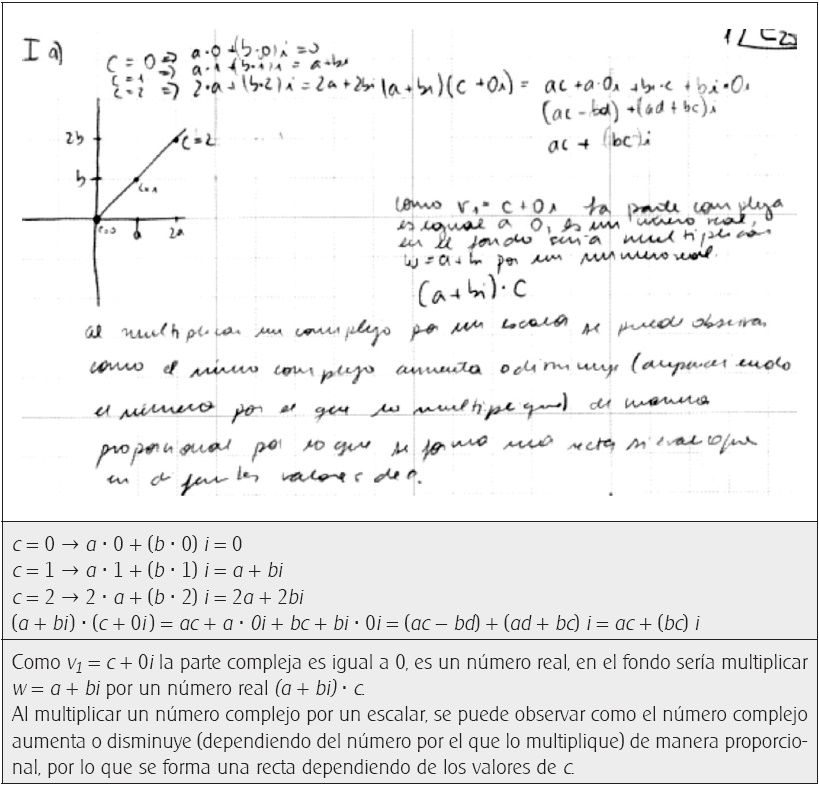 I a)
1/
C = 0 ⇒ a·0 + (b·0)i = 0
c = 1 ⇒ a·1 + (b·1)i = a+bi
c = 2 ⇒ 2·a + (b·2)i = 2a + 2bi
(a+bi)(c+0i) = ac + a·0i + bi·c + bi·0i
(ac - bd) + (ad + bc)i
ac + (bc)i
2b
c=2
b
c=1
c=0
a
2a
como v₁ = c + 0i la parte compleja
es igual a 0, es un número real,
en el fondo sería multiplicar
w = a + bi por un número real.
(a+bi)·C
al multiplicar un complejo por un escalar se puede observar
como el número complejo aumenta o disminuye (dependiendo
el número por el que lo multiplique) de manera
proporcional por lo que se forma una recta
en valores de
c = 0 → a · 0 + (b · 0) i = 0
c = 1 → a · 1 + (b · 1) i = a + bi
c = 2 → 2 · a + (b · 2) i = 2a + 2bi
(a + bi) · (c + 0i) = ac + a · 0i + bc + bi · 0i = (ac – bd) + (ad + bc) i = ac + (bc) i
Como v₁ = c + 0i la parte compleja es igual a 0, es un número real, en el fondo sería multiplicar
w = a + bi por un número real (a + bi) · c.
Al multiplicar un número complejo por un escalar, se puede observar como el número complejo
aumenta o disminuye (dependiendo del número por el que lo multiplique) de manera proporcio-
nal, por lo que se forma una recta dependiendo de los valores de c.